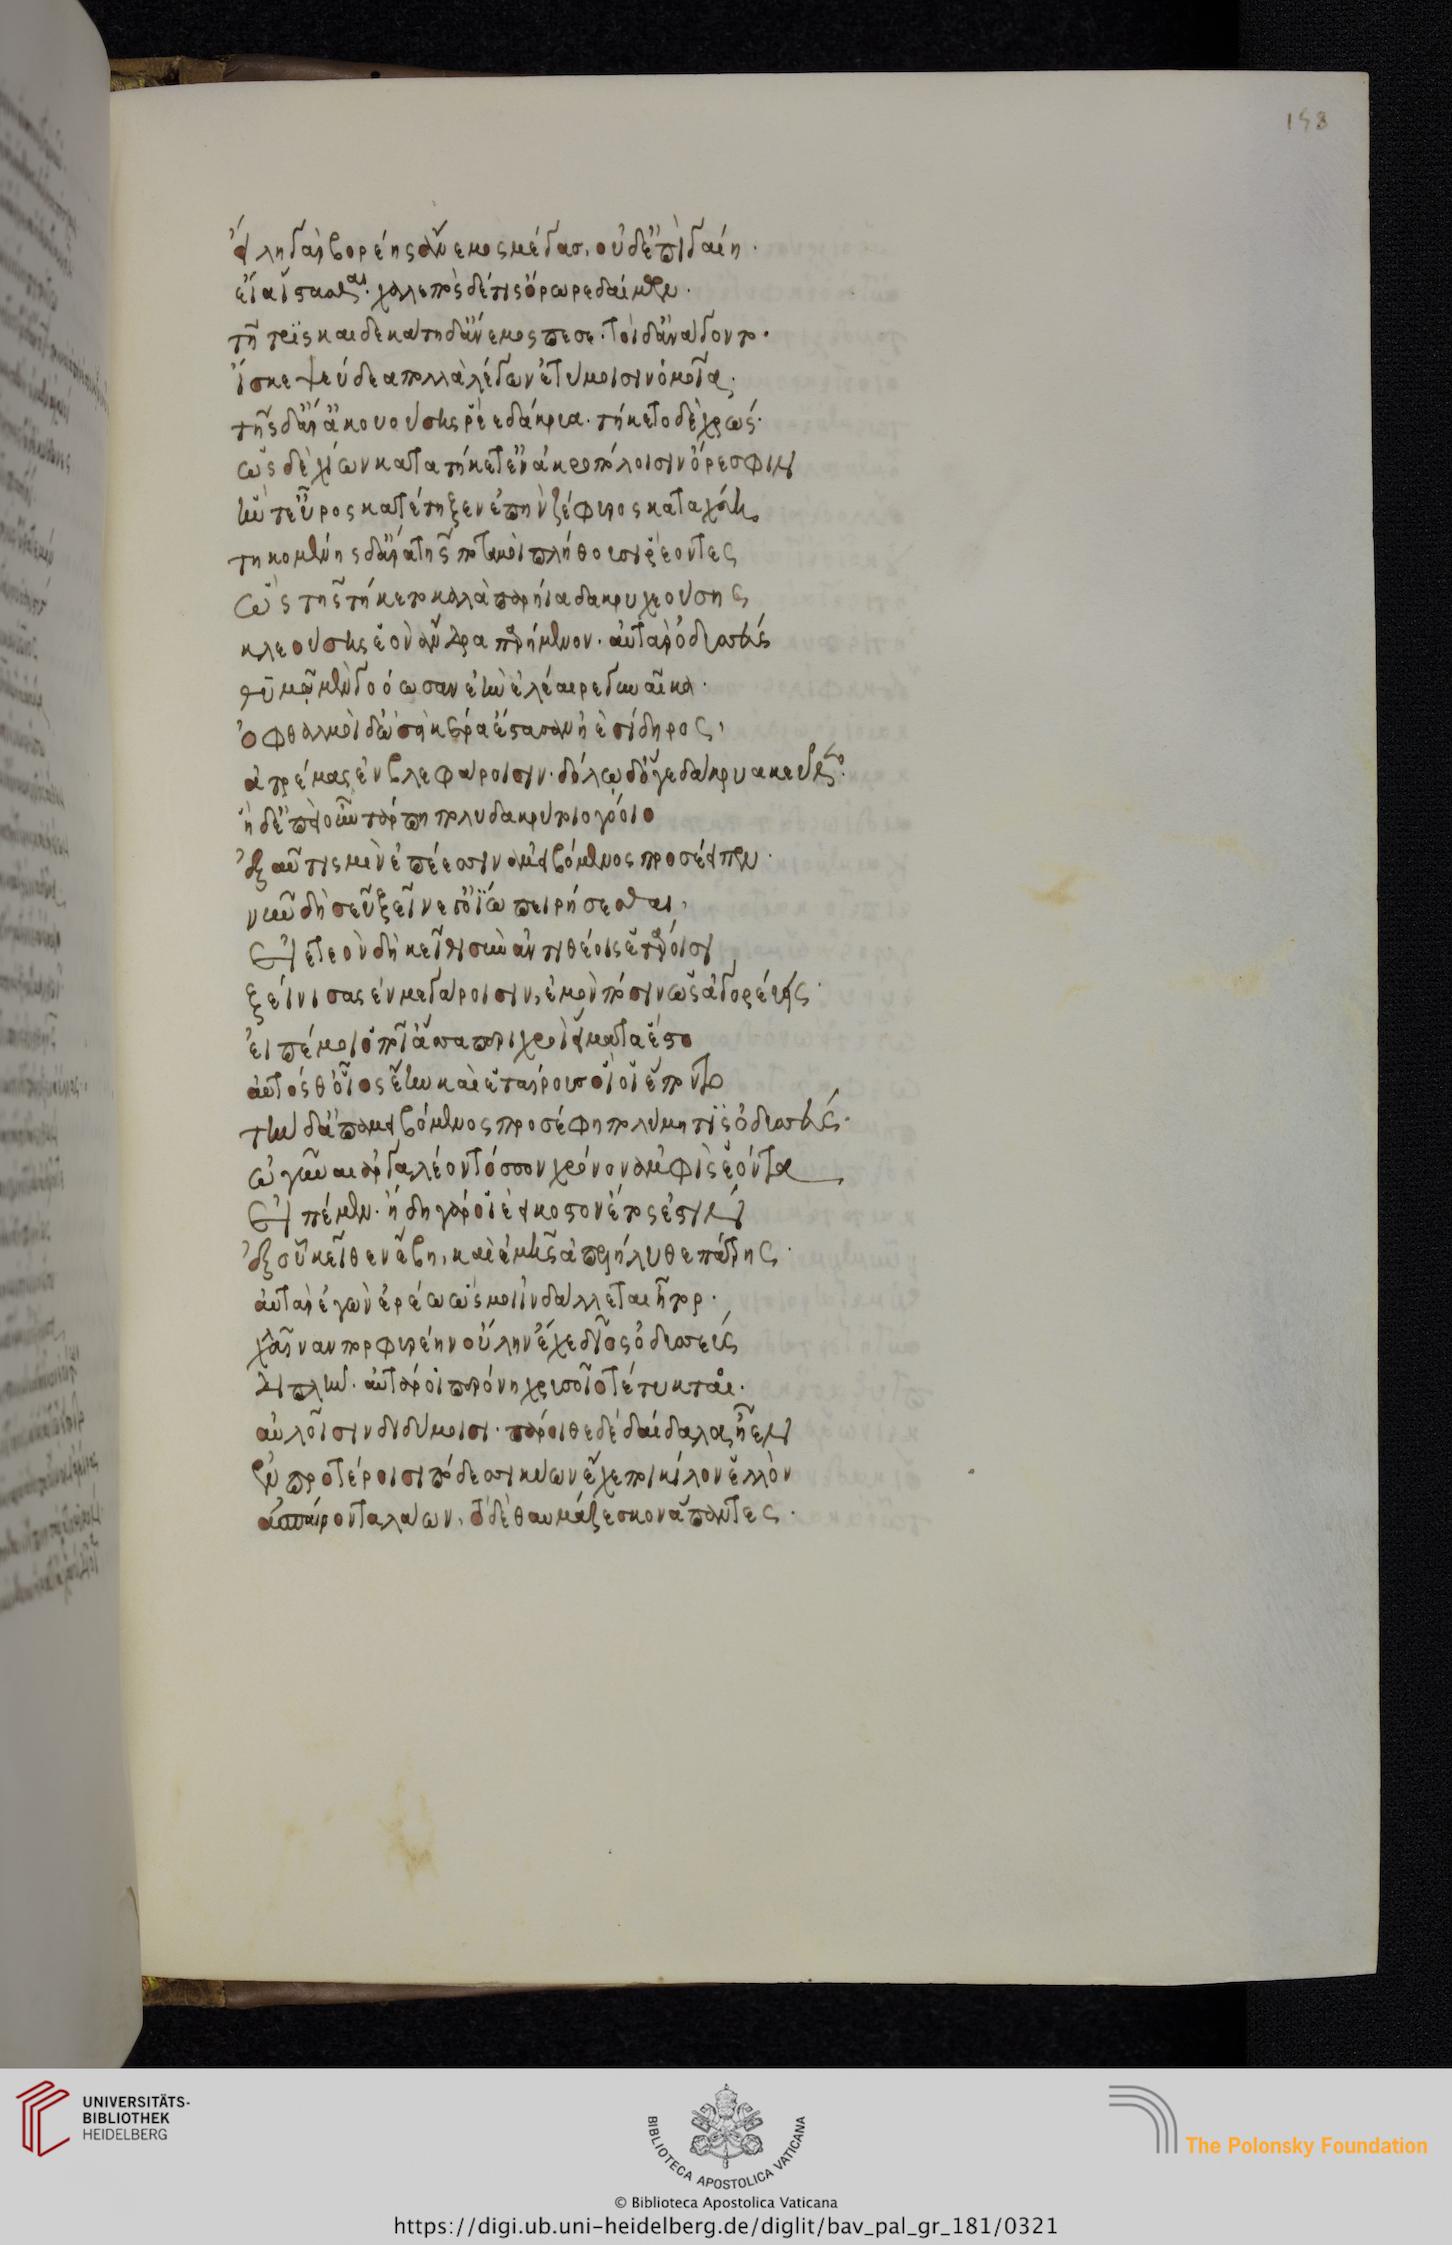 158
εἴλει γὰρ βορέης ἄνεμος μέγας, οὐδ' ἐπὶ γαίη·
εἴα ἵστασθαι· χαλεπὸς δέ τις ὤρορε δαίμων·
τῇ τρὶς καὶ δεκάτη δ' ἄνεμος πέσε· τοὶ δ' ἀνάγοντο·
ἴσκε ψεύδεα πολλὰ λέγων ἐτύμοισιν ὁμοῖα·
τῆς δ' ἄρ' ἀκουούσης ῥέε δάκρυα· τήκετο δὲ χρώς·
ὡς δὲ χιὼν κατατήκετ' ἐν ἀκροπόλοισιν ὄρεσφιν
ἥν τ' εὖρος κατέτηξεν ἐπὴν ζέφυρος καταχεύη
τηκομένης δ' ἄρα τῆς ποταμοὶ πλήθουσι ῥέοντες
ὣς τῆς τήκετο καλὰ παρήια δακρυχεούσης
κλαιούσης ἑὸν ἄνδρα παρήμενον· αὐτὰρ ὀδυσσεὺς
θυμῷ μὲν γοόωσαν ἑὴν ἐλέαιρε γυναῖκα·
ὀφθαλμοὶ δ' ὡσεὶ κέρα ἕστασαν ἠὲ σίδηρος,
ἀτρέμας ἐν βλεφάροισιν· δόλω δ' ὅγε δάκρυα κεῦθεν·
ἡ δ' ἐπεὶ οὖν τάρφθη πολυδακρύτοιο γόοιο
ἐξαῦτίς μιν ἐπέεσσιν ἀμειβομένη προσέειπεν·
νῦν δὴ σεῦ ξεῖνέ γ' ὀΐω πειρήσεσθαι,
εἰ ἐτεὸν δὴ κεῖθι σὺν ἀντιθέοις ἑτάροισι
ξείνισας ἐν μεγάροισιν, ἐμὸν πόσιν ὡς ἀγορεύεις·
εἰπέ μοι ὁπποῖ' ἄσσα περὶ χροῒ εἵματα ἕστο
αὐτός θ' οἷος ἔην καὶ ἑταίρους οἵ οἱ ἕποντο
τὴν δ' ἀπαμειβόμενος προσέφη πολύμητις ὀδυσσεύς·
ὦ γύναι ἀργαλέον τόσσον χρόνον ἀμφὶς ἐόντα
εἰπέμεν· ἤδη γάρ οἱ ἐεικοστὸν ἔτος ἐστὶν
ἐξ οὗ κεῖθεν ἔβη, καὶ ἐμῆς ἀπελήλυθε πάτρης·
αὐτὰρ ἐγὼν ἐρέω ὥς μοι ἰνδάλλεται ἦτορ·
χλαῖναν πορφυρέην οὔλην ἔχε δῖος ὀδυσσεὺς
διπλῆν· αὐτάρ οἱ περόνη χρυσοῖο τέτυκται·
αὐλοῖσιν διδύμοισι· πάροιθε δὲ δαίδαλα ἦεν
ἐν προτέροισι πόδεσσι κύων ἔχε ποικίλον ἐλλὸν
ἀσπαίροντα λάων, τὸ δὲ θαυμάζεσκον ἅπαντες·
UNIVERSITÄTS-
BIBLIOTHEK
HEIDELBERG
BIBLIOTECA APOSTOLICA VATICANA
The Polonsky Foundation
© Biblioteca Apostolica Vaticana
https://digi.ub.uni-heidelberg.de/diglit/bav_pal_gr_181/0321